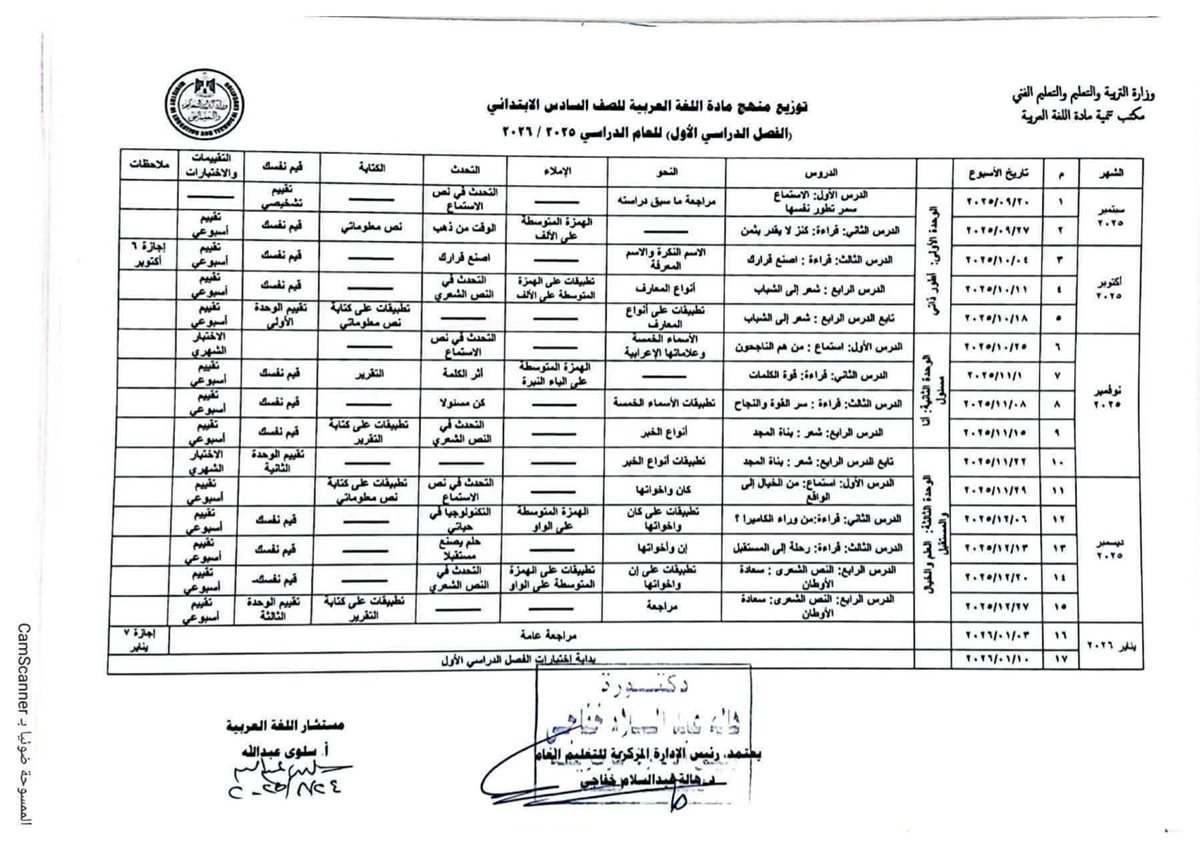 وزارة التربية والتعليم والتعليم الفني
مكتب تنمية مادة اللغة العربية
توزيع منهج مادة اللغة العربية للصف السادس الابتدائي
(الفصل الدراسي الأول) للعام الدراسي ٢٠٢٥ / ٢٠٢٦
الشهر م تاريخ الأسبوع الدروس النحو الإملاء التحدث الكتابة قيم نفسك التقييمات والاختبارات ملاحظات
سبتمبر ٢٠٢٥
الوحدة الأولى: أطور ذاتي
١ ٢٠٢٥/٠٩/٢٠ الدرس الأول: الاستماع سمر تطور نفسها مراجعة ما سبق دراسته ـــــ التحدث في نص الاستماع ـــــ تقييم تشخيصي ـــــ
٢ ٢٠٢٥/٠٩/٢٧ الدرس الثاني: قراءة: كنز لا يقدر بثمن ـــــ الهمزة المتوسطة على الألف الوقت من ذهب نص معلوماتي قيم نفسك تقييم أسبوعي
أكتوبر ٢٠٢٥
٣ ٢٠٢٥/١٠/٠٤ الدرس الثالث: قراءة : اصنع قرارك الاسم النكرة والاسم المعرفة ـــــ اصنع قرارك ـــــ قيم نفسك تقييم أسبوعي إجازة ٦ أكتوبر
٤ ٢٠٢٥/١٠/١١ الدرس الرابع : شعر إلى الشباب أنواع المعارف تطبيقات على الهمزة المتوسطة على الألف التحدث في النص الشعري ـــــ قيم نفسك تقييم أسبوعي
٥ ٢٠٢٥/١٠/١٨ تابع الدرس الرابع : شعر إلى الشباب تطبيقات على أنواع المعارف ـــــ ـــــ تطبيقات على كتابة نص معلوماتي تقييم الوحدة الأولى تقييم أسبوعي
نوفمبر ٢٠٢٥
الوحدة الثانية: أنا مسئول
٦ ٢٠٢٥/١٠/٢٥ الدرس الأول: استماع : من هم الناجحون الأسماء الخمسة وعلاماتها الإعرابية ـــــ التحدث في نص الاستماع ـــــ الاختبار الشهري
٧ ٢٠٢٥/١١/١ الدرس الثاني: قراءة: قوة الكلمات ـــــ الهمزة المتوسطة على الياء النبرة أثر الكلمة التقرير قيم نفسك تقييم أسبوعي
٨ ٢٠٢٥/١١/٠٨ الدرس الثالث: قراءة : سر القوة والنجاح تطبيقات الأسماء الخمسة ـــــ كن مسئولا ـــــ قيم نفسك تقييم أسبوعي
٩ ٢٠٢٥/١١/١٥ الدرس الرابع: شعر : بناة المجد أنواع الخبر ـــــ التحدث في النص الشعري تطبيقات على كتابة التقرير قيم نفسك تقييم أسبوعي
١٠ ٢٠٢٥/١١/٢٢ تابع الدرس الرابع: شعر : بناة المجد تطبيقات أنواع الخبر ـــــ ـــــ ـــــ تقييم الوحدة الثانية الاختبار الشهري
ديسمبر ٢٠٢٥
الوحدة الثالثة: العلم والخيال والمستقبل
١١ ٢٠٢٥/١١/٢٩ الدرس الأول: استماع: من الخيال إلى الواقع كان واخواتها ـــــ التحدث في نص الاستماع تطبيقات على كتابة نص معلوماتي تقييم أسبوعي
١٢ ٢٠٢٥/١٢/٠٦ الدرس الثاني: قراءة:من وراء الكاميرا ؟ تطبيقات على كان واخواتها الهمزة المتوسطة على الواو التكنولوجيا في حياتي ـــــ قيم نفسك تقييم أسبوعي
١٣ ٢٠٢٥/١٢/١٣ الدرس الثالث: قراءة: رحلة إلى المستقبل إن وأخواتها ـــــ حلم يصنع مستقبلا ـــــ قيم نفسك تقييم أسبوعي
١٤ ٢٠٢٥/١٢/٢٠ الدرس الرابع: النص الشعرى : سعادة الأوطان تطبيقات على إن واخواتها تطبيقات على الهمزة المتوسطة على الواو التحدث في النص الشعري ـــــ قيم نفسك تقييم أسبوعي
١٥ ٢٠٢٥/١٢/٢٧ الدرس الرابع: النص الشعرى: سعادة الأوطان مراجعة ـــــ ـــــ تطبيقات على كتابة التقرير تقييم الوحدة الثالثة تقييم أسبوعي
يناير ٢٠٢٦
١٦ ٢٠٢٦/٠١/٠٣ مراجعة عامة إجازة ٧ يناير
١٧ ٢٠٢٦/٠١/١٠ بداية اختبارات الفصل الدراسي الأول
دكتورة
هالة عبد السلام خفاجي
يعتمد، رئيس الإدارة المركزية للتعليم العام
د. هالة عبدالسلام خفاجي
مستشار اللغة العربية
أ. سلوى عبدالله
الممسوحة ضوئيا بـ CamScanner